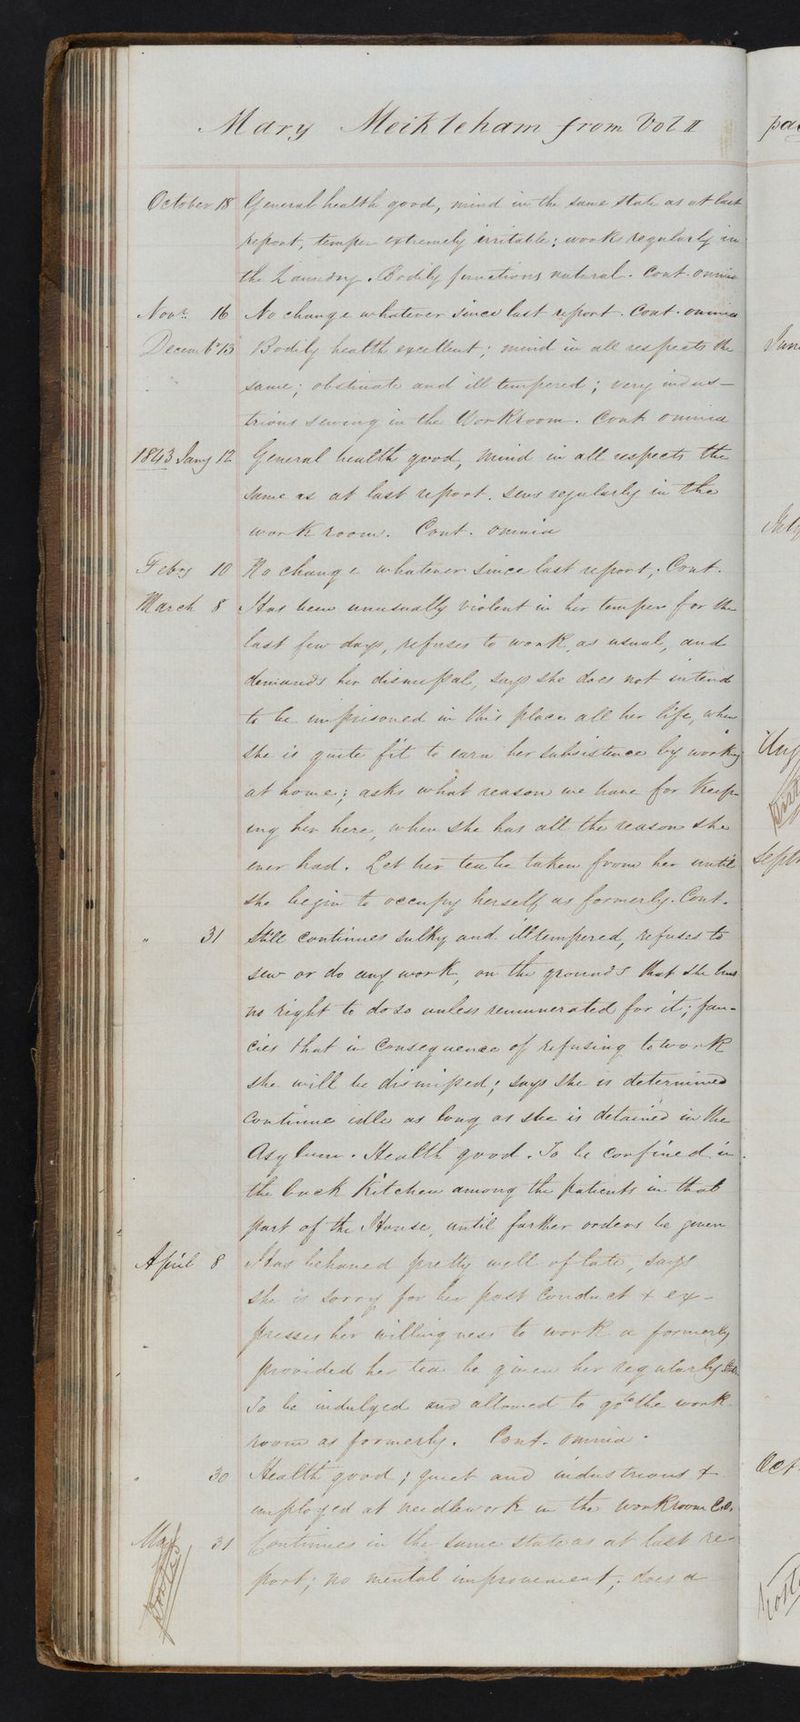 Mary Meikleham from Vol II
October 18 General health good, mind in the same state as at last
report, temper extremely irritable; works regularly in
the Laundry. Bodily functions natural. Cont. omnia
Novr. 16 No change whatever since last report. Cont. omnia
Decembr 13 Bodily health excellent; mind in all respects the
same; obstinate and ill tempered; very indus-
trious sewing in the Workroom. Cont omnia
1843 Jany 12 General health good, mind in all respects the
same as at last report. sews regularly in the
work room. Cont. omnia
Feby 10 No change whatever since last report; Cont.
March 8 Has been unusually violent in her temper for the
last few days, refuses to work, as usual, and
demands her dismissal, says she does not intend
to be imprisoned in this place all her life, when
she is quite fit to earn her subsistence by working
at home; asks what reason we have for keep-
ing her here, when she has all the reason she
ever had. Let her tea be taken from her until
she begin to occupy herself as formerly. Cont.
" 31 Still continues sulky and illtempered, refuses to
sew or do any work, on the grounds that she has
no right to do so unless remunerated for it; fan-
cies that in consequence of refusing to work
she will be dismissed; says she is determined
continue idle as long as she is detained in the
Asylum. Health good. To be confined in
the back Kitchen among the patients in that
part of the House, until farther orders be given
April 8 Has behaved pretty well of late, says
she is sorry for her past conduct & ex-
presses her willingness to work as formerly
provided her tea be given her regularly.
To be indulged and allowed to go to the work
room as formerly. Cont. omnia.
" 30 Health good; quiet and industrious &
employed at needlework in the workroom C.O.
May 31 Continues in the same state as at last re-
port; no mental improvement, does a